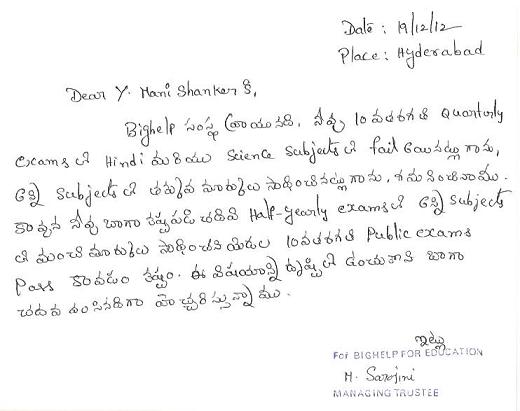 Date : 19/12/12
Place : Hyderabad
Dear Y. Mani Shanker k,
Bighelp సంస్థ వ్రాయునది, నీవు 10వతరగతి Quarterly
exams లో Hindi మరియు Science Subjects లో fail అయినట్లు గాను,
అన్ని Subjects లో తక్కువ మార్కులు సాధించినట్లు గాను, గమనించినాము.
కావున నీవు బాగా కష్టపడి చదివి Half-yearly exams లో అన్ని Subjects
లో మంచి మార్కులు సాధించని యెడల 10వతరగతి Public exams
Pass కావడం కష్టం. ఈ విషయాన్ని దృష్టిలో ఉంచుకొని బాగా
చదువ వలసినదిగా హెచ్చరిస్తున్నాము.
ఇట్లు
For BIGHELP FOR EDUCATION
M. Sarojini
MANAGING TRUSTEE